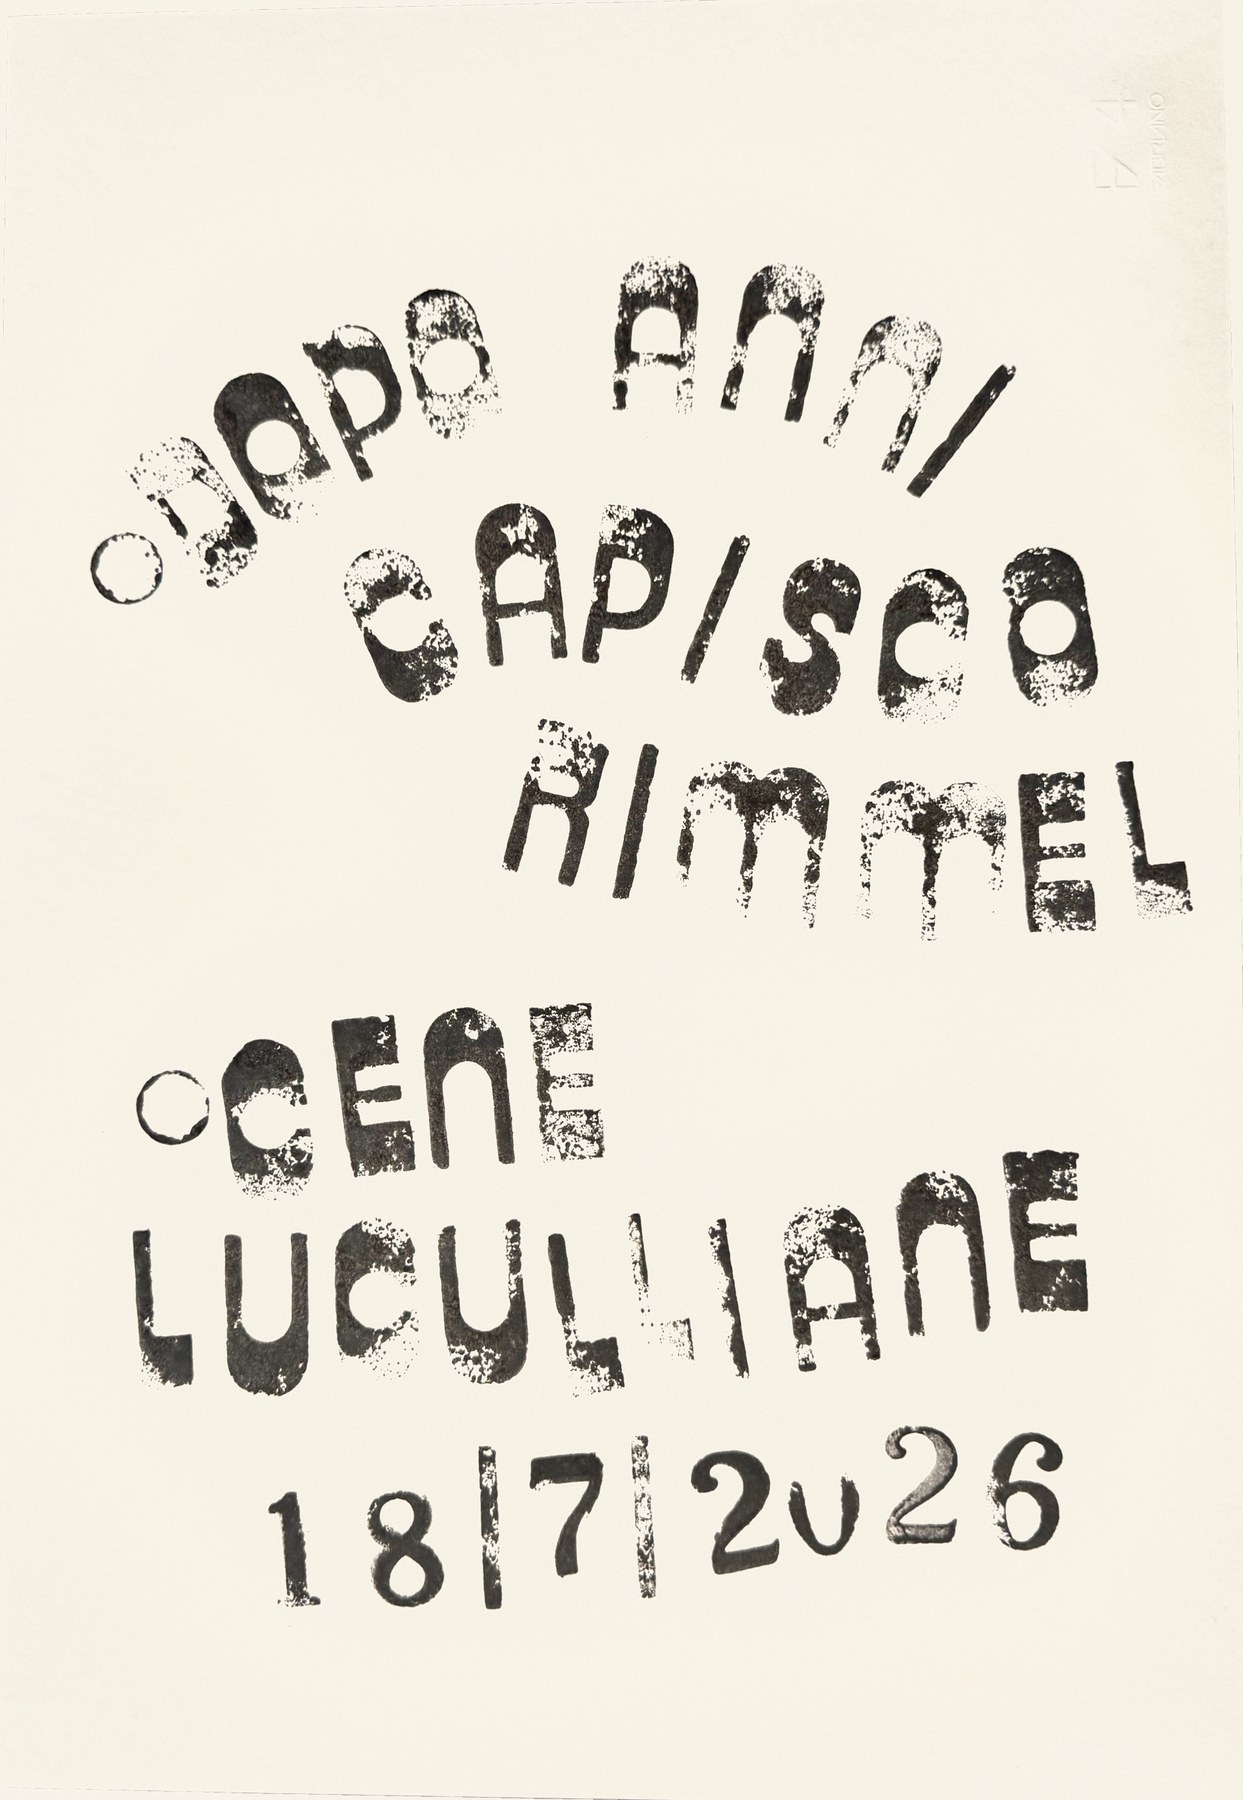 DOPO ANNI
CAPISCO
RIMMEL
CENE
LUCULLIANE
18|7|2026